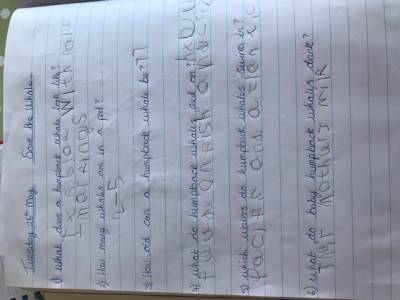 Tuesday 26th May Save the Whale
1) What does a humpback whale look like?
with pale
markings
2) How many whales are in a pod?
2-5
3) How old can a humpback whale be? 77
4) What do humpback whales feed on?
5) which waters do humpback whales swim in?
Pacific and atlantic
6) What do baby humpback whales drink?
mother's milk